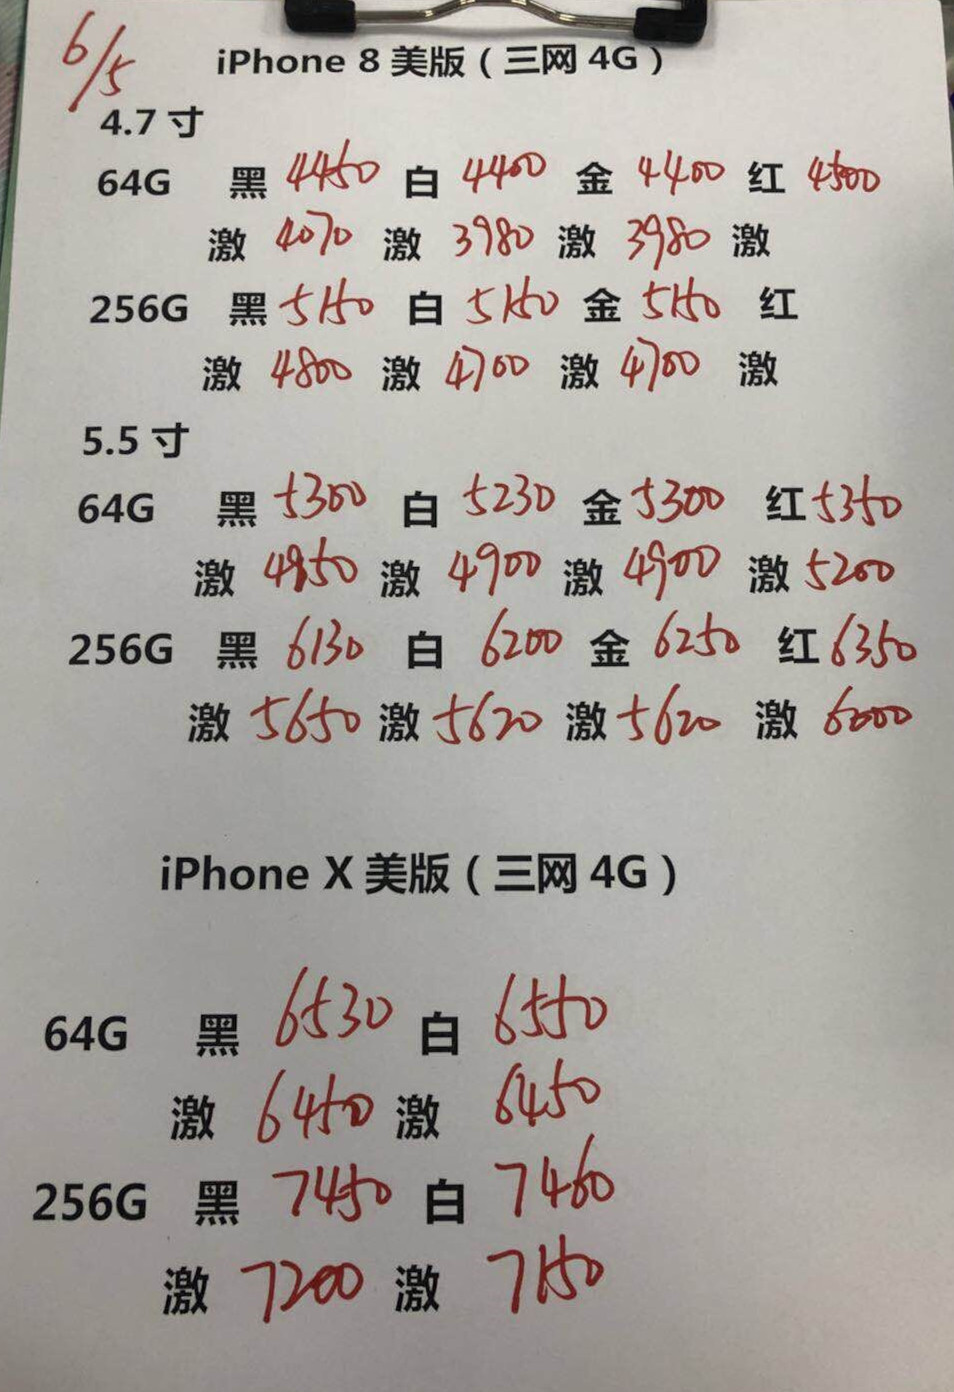 6/5
iPhone 8 美版（三网 4G）
4.7 寸
64G 黑 4450 白 4400 金 4400 红 4500
激 4070 激 3980 激 3980 激
256G 黑 5150 白 5150 金 5150 红
激 4800 激 4700 激 4700 激
5.5 寸
64G 黑 5300 白 5230 金 5300 红 5350
激 4950 激 4900 激 4900 激 5200
256G 黑 6130 白 6200 金 6250 红 6350
激 5650 激 5620 激 5620 激 6000
iPhone X 美版（三网 4G）
64G 黑 6530 白 6550
激 6450 激 6450
256G 黑 7450 白 7460
激 7200 激 7150